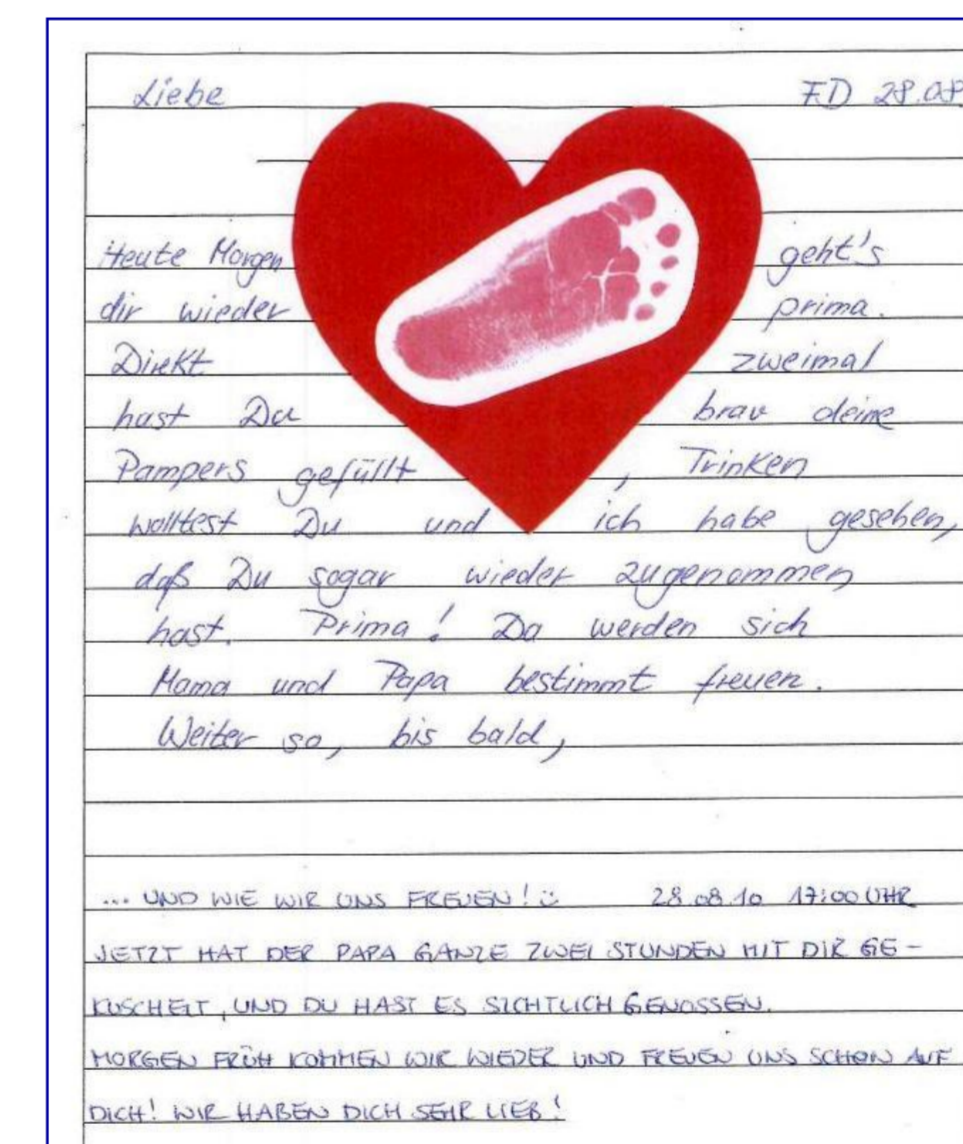 Liebe FD 28.08
Heute Morgen geht's
dir wieder prima.
Direkt zweimal
hast Du brav deine
Pampers gefüllt, Trinken
wolltest Du und ich habe gesehen,
daß Du sogar wieder zugenommen
hast. Prima! Da werden sich
Mama und Papa bestimmt freuen.
Weiter so, bis bald,
... UND WIE WIR UNS FREUEN! ☺ 28.08.10 17:00 UHR
JETZT HAT DER PAPA GANZE ZWEI STUNDEN MIT DIR GE-
KUSCHELT, UND DU HAST ES SICHTLICH GENOSSEN.
MORGEN FRÜH KOMMEN WIR WIEDER UND FREUEN UNS SCHON AUF
DICH! WIR HABEN DICH SEHR LIEB!